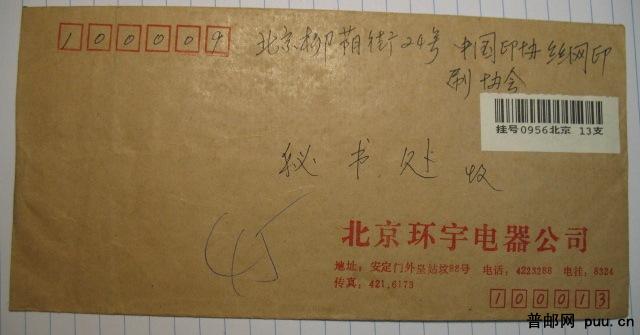 100009
北京柳荫街24号 中国印协丝网印
刷协会
挂号0956北京 13支
秘书处 收
北京环宇电器公司
地址：安定门外皇姑坟88号 电话：4223288 电挂：8324
传真：421.6173
100013
普邮网 puu.cn